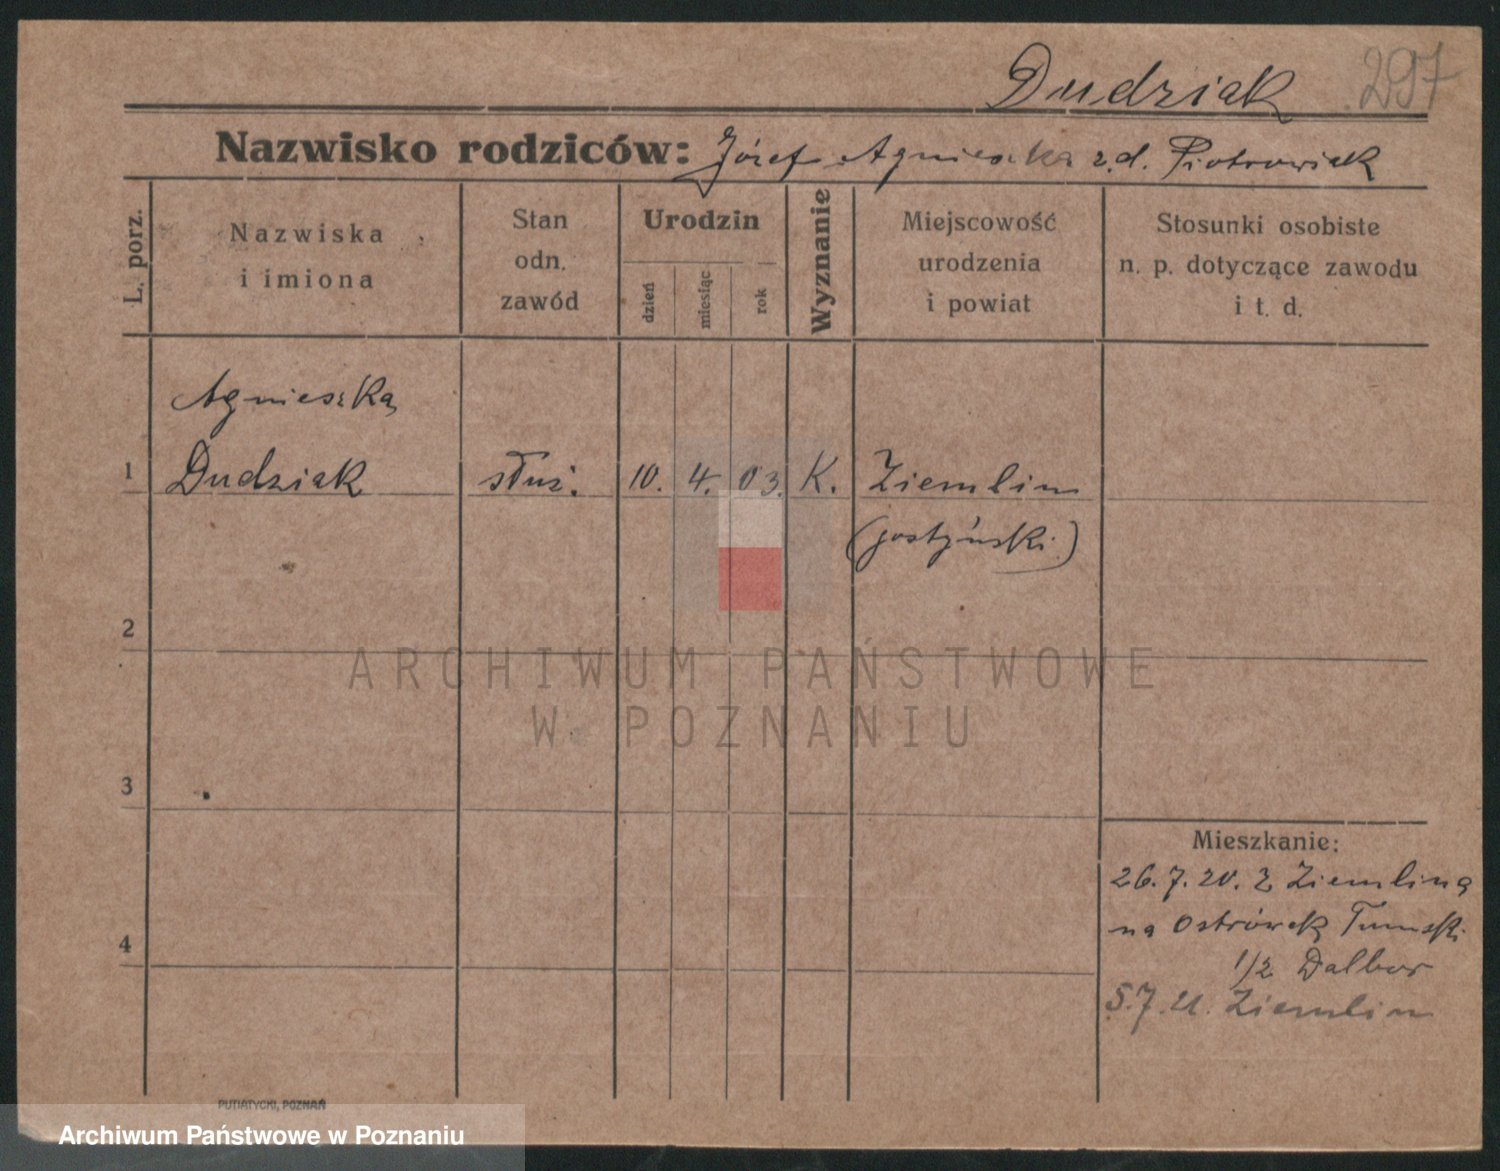 Dudziak 297
Nazwisko rodziców: Józef Agnieszka z.d. Piotrowiak
L. porz.
Nazwiska
i imiona
Stan
odn.
zawód
Urodzin
dzień
miesiąc
rok
Wyznanie
Miejscowość
urodzenia
i powiat
Stosunki osobiste
n. p. dotyczące zawodu
i t. d.
Agnieszka
1 Dudziak służ. 10. 4. 03. K. Ziemlin
(gostyński)
2
ARCHIWUM PAŃSTWOWE
W POZNANIU
3
Mieszkanie:
26.7.20. z Ziemlina
na Ostrówek Tumski
1/2 Dalbor
4
5.7.21. Ziemlin
PUTIATYCKI, POZNAŃ
Archiwum Państwowe w Poznaniu